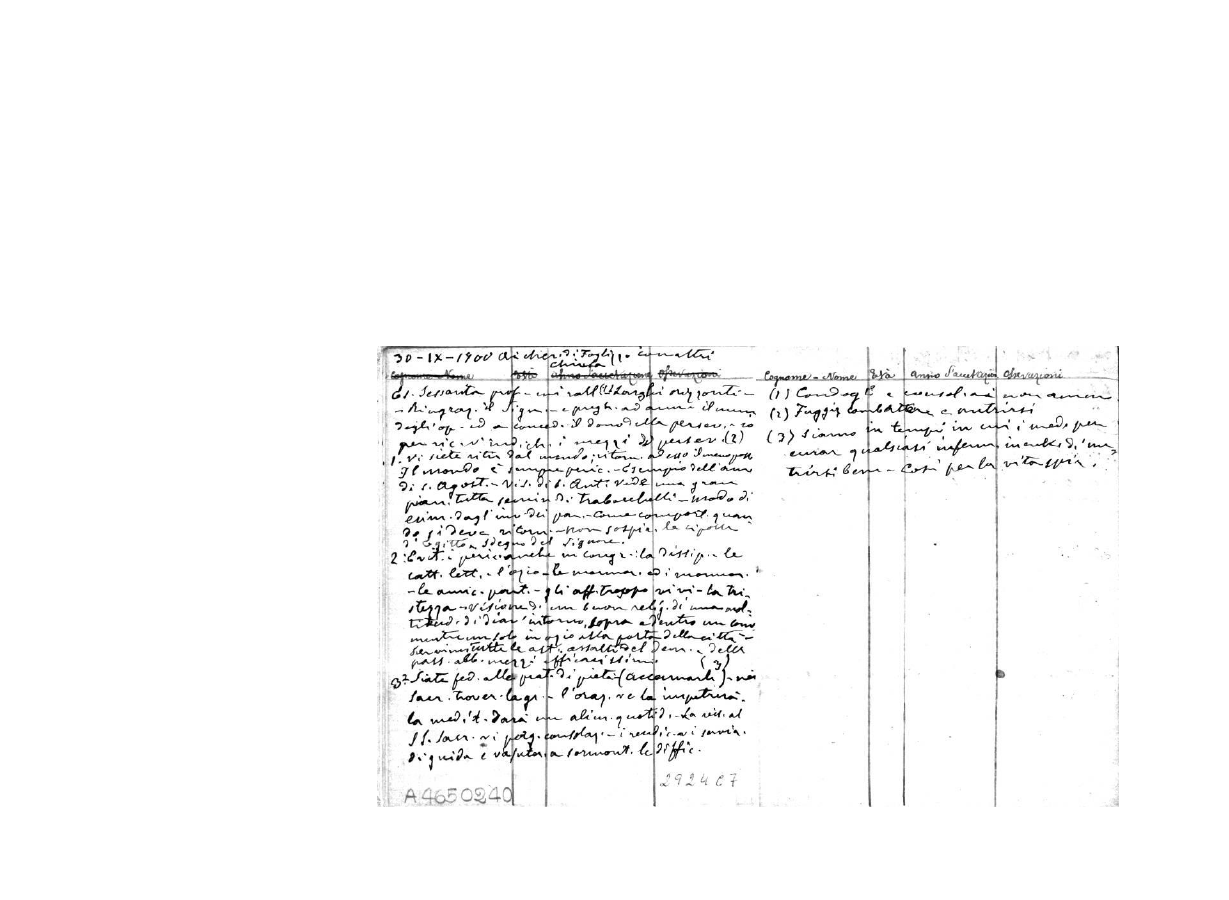 30-IX-1900 Ai chier. di Foglizzo con altri
chiesa
Cognome-Nome Età Anno d'accettazione Osservazioni
Es. Sessanta prof. - mi rall. (1)
- Ringraz. il Sign. - e pregh. ad aum. il num.
degli op. ed a conced. il dono della persev. - io
per ric. v'indich. i mezzi di persev. (2)
1. Vi siete ritir. dal mondo: ritorn. ad esso il meno poss
Il mondo è sempre peric. - Esempio dell'am
di S. Agost. - Vis. di S. Ant. vede una gran
pian. tutta semin. di trabocchelli - modo di
esim. dagl'inv. dei par. - Come comport. quan
do si deve ritorn. - non sospir. le cipolle
d'Egitto, sdegno del Signore.
2. Evit. i peric. anche in congr.: la dissip. - le
catt. lett. - l'ozio - le mormor. ed i mormor.
- le amic. part. - gli aff. troppo vivi - la tri
stezza - Visione di un buon relig. di una mol
titud. di diav. intorno, sopra e dentro un conv
mentre un solo in ozio alla porta della città -
per vinc. tutte le ast. assalti del dem. e delle
pass. abb. mezzi efficacissimi (3)
3º Siate fed. alle prat. di pietà (accennarli) - nei
Sacr. trover. la gr. - l'oraz. ve la impetrerà.
la medit. darà un alim. quotid. - La vis. al
SS. Sacr. vi porg. consolaz. - i rendic. vi servir.
di guida e v'aiuter. a sormont. le diffic.
2924 C7
A4650240
Cognome - Nome Età Anno d'accettazione Osservazioni
(1) Condogl. e consol. ai non ancor
(2) Fuggir combattere e nutrirsi
(3) Siamo in tempi in cui i med. per
curar qualsiasi inferm. inculc. di nu
trirsi bene - Così per la vita spir.